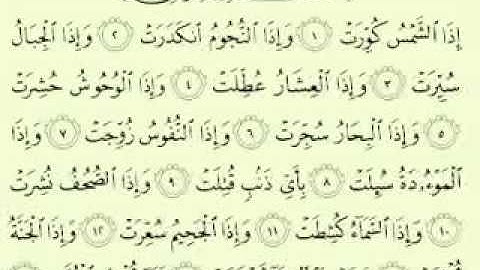 إِذَا ٱلشَّمْسُ كُوِّرَتْ ١ وَإِذَا ٱلنُّجُومُ ٱنكَدَرَتْ ٢ وَإِذَا ٱلْجِبَالُ
سُيِّرَتْ ٣ وَإِذَا ٱلْعِشَارُ عُطِّلَتْ ٤ وَإِذَا ٱلْوُحُوشُ حُشِرَتْ
٥ وَإِذَا ٱلْبِحَارُ سُجِّرَتْ ٦ وَإِذَا ٱلنُّفُوسُ زُوِّجَتْ ٧ وَإِذَا
ٱلْمَوْءُۥدَةُ سُئِلَتْ ٨ بِأَىِّ ذَنۢبٍ قُتِلَتْ ٩ وَإِذَا ٱلصُّحُفُ نُشِرَتْ
١٠ وَإِذَا ٱلسَّمَآءُ كُشِطَتْ ١١ وَإِذَا ٱلْجَحِيمُ سُعِّرَتْ ١٢ وَإِذَا ٱلْجَنَّةُ